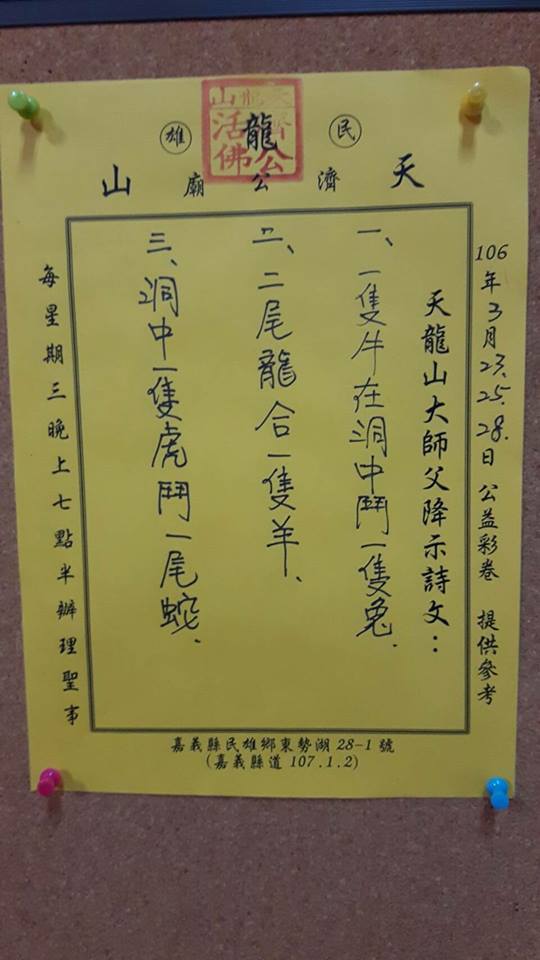 民雄
天龍山
濟公廟
天龍山濟公活佛
106年3月23.25.28.日 公益彩卷 提供參考
天龍山大師父降示詩文：
一、一隻牛在洞中鬥一隻兔.
二、二尾龍合一隻羊、
三、洞中一隻虎鬥一尾蛇.
每星期三晚上七點半辦理聖事
嘉義縣民雄鄉東勢湖28-1號
(嘉義縣道107.1.2)